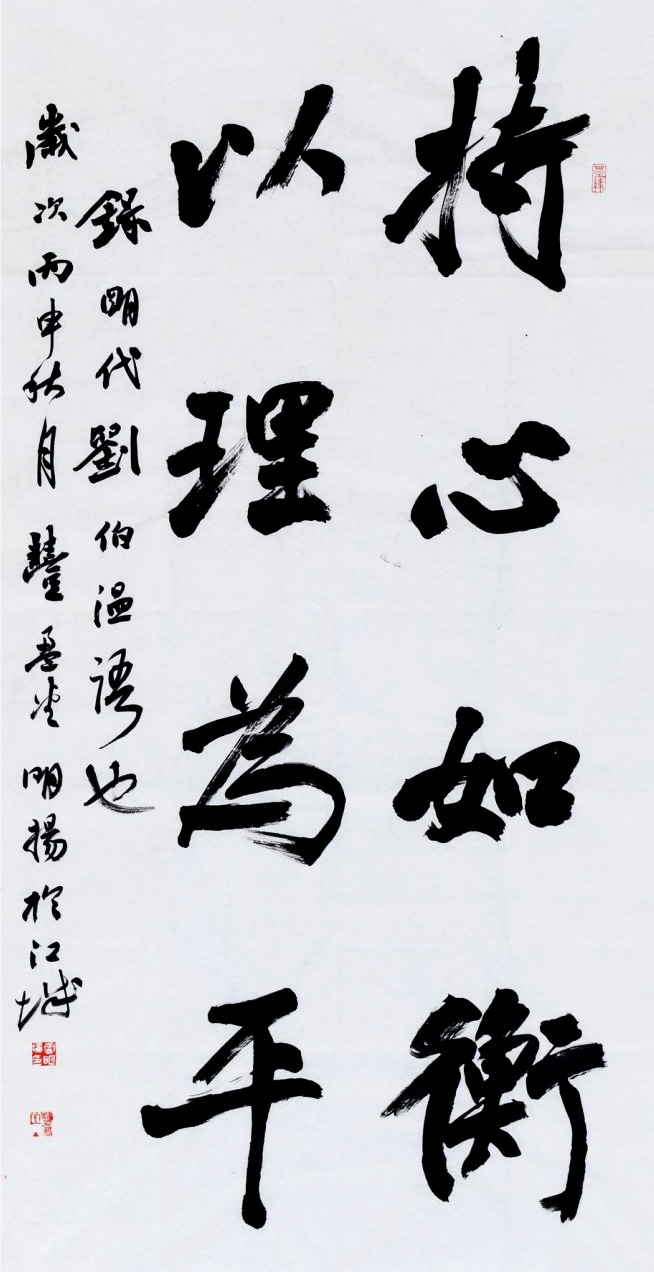 持心如衡
以理為平
錄明代劉伯溫語也
歲次丙申秋月 明揚於江城